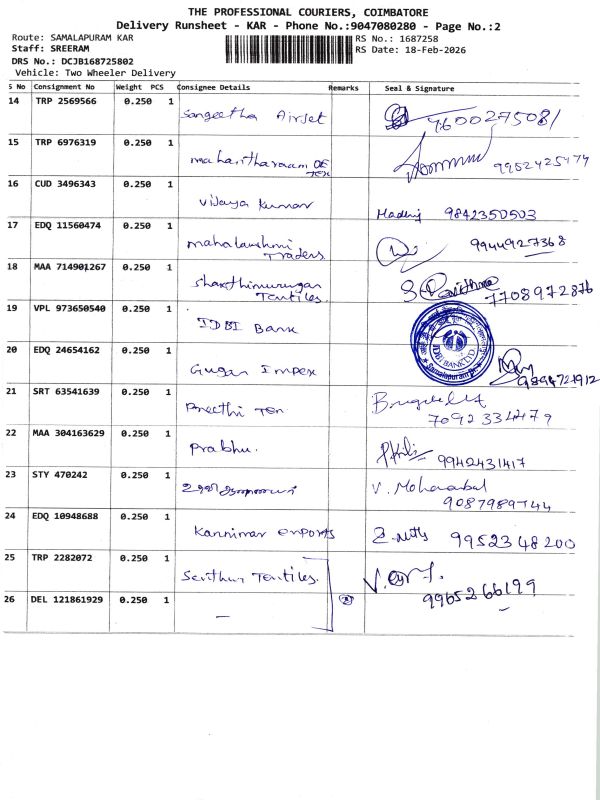 THE PROFESSIONAL COURIERS, COIMBATORE
Delivery Runsheet - KAR - Phone No.:9047080280 - Page No.:2
Route: SAMALAPURAM KAR
RS No.: 1687258
Staff: SREERAM
RS Date: 18-Feb-2026
DRS No.: DCJB168725802
Vehicle: Two Wheeler Delivery
S No Consignment No Weight PCS Consignee Details Remarks Seal & Signature
14 TRP 2569566 0.250 1 Sangeetha Airjet 7600027508/
15 TRP 6976319 0.250 1 9952425474
16 CUD 3496343 0.250 1 Vijaya Kumar 9842350503
17 EDQ 11560474 0.250 1 Mahalakshmi Traders 9944927368
18 MAA 714901267 0.250 1 Textiles. 7708972876
19 VPL 973650540 0.250 1 IDBI Bank
IDBI BANK LTD
Samalapuram Br
20 EDQ 24654162 0.250 1 Gugan Impex 9894721912
21 SRT 63541639 0.250 1 Preethi Tex
22 MAA 304163629 0.250 1 Prabhu. 9942431417
23 STY 470242 0.250 1 V. 9087989744
24 EDQ 10948688 0.250 1 Kannimar exports 9952348200
25 TRP 2282072 0.250 1 Textiles. 9965266199
26 DEL 121861929 0.250 1 —